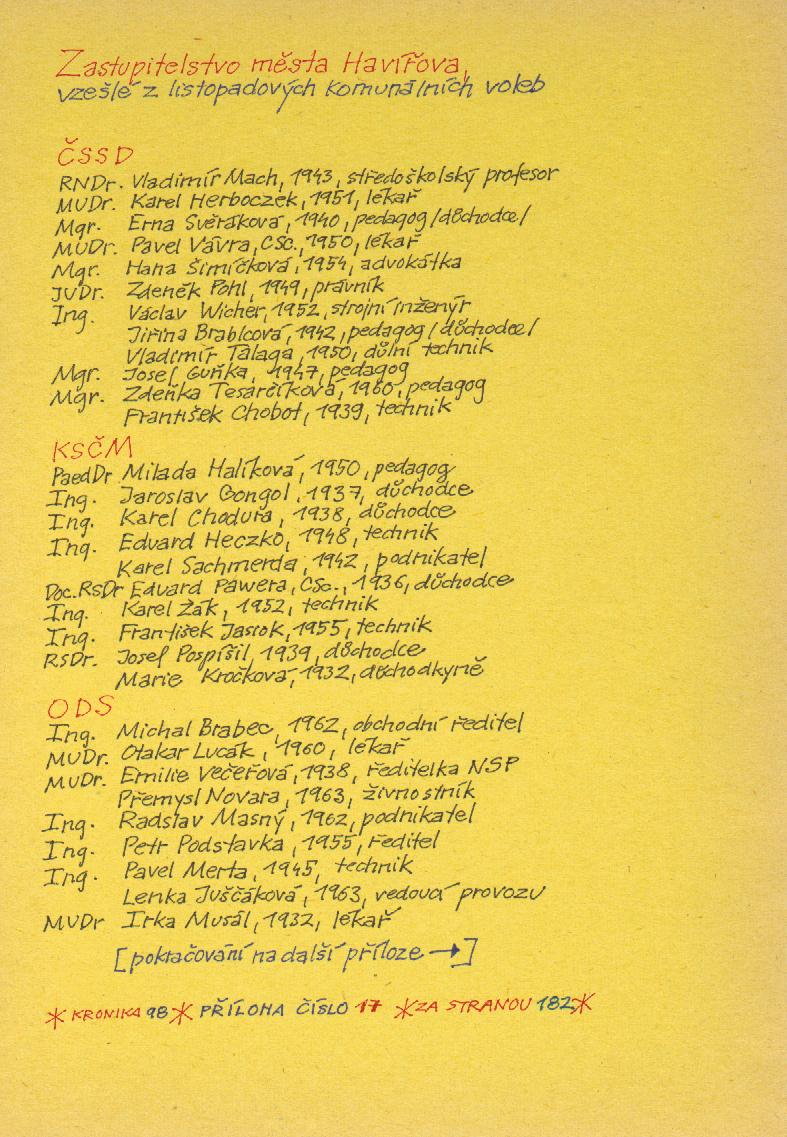 Zastupitelstvo města Havířova,
vzešlé z listopadových komunálních voleb
ČSSD
RNDr. Vladimír Mach, 1943, středoškolský profesor
MUDr. Karel Herboczek, 1951, lékař
Mgr. Erna Svěráková, 1940, pedagog/důchodce/
MUDr. Pavel Vávra, CSc., 1950, lékař
Mgr. Hana Šimíčková, 1954, advokátka
JUDr. Zdeněk Pohl, 1949, právník
Ing. Václav Wicher, 1952, strojní inženýr
Jiřina Brablcová, 1942, pedagog/důchodce/
Vladimír Talaga, 1950, důlní technik
Mgr. Josef Guňka, 1947, pedagog
Mgr. Zdeňka Tesarčíková, 1960, pedagog
František Chobot, 1939, technik
KSČM
PaedDr Milada Halíková, 1950, pedagog
Ing. Jaroslav Gongol, 1937, důchodce
Ing. Karel Chodura, 1938, důchodce
Ing. Eduard Heczko, 1948, technik
Karel Sachmerda, 1942, podnikatel
Doc. RSDr Eduard Pawera, CSc., 1936, důchodce
Ing. Karel Žák, 1952, technik
Ing. František Jasiok, 1955, technik
RSDr. Josef Pospíšil, 1939, důchodce
Marie Kročková, 1932, důchodkyně
ODS
Ing. Michal Brabec, 1962, obchodní ředitel
MUDr. Otakar Lucák, 1960, lékař
MUDr. Emilie Večeřová, 1938, ředitelka NSP
Přemysl Novara, 1963, živnostník
Ing. Radslav Masný, 1962, podnikatel
Ing. Petr Podstavka, 1955, ředitel
Ing. Pavel Merta, 1945, technik
Lenka Juščáková, 1963, vedoucí provozu
MUDr Irka Musál, 1932, lékař
[pokračování na další příloze →]
* KRONIKA 98 * PŘÍLOHA ČÍSLO 17 * ZA STRANOU 182 *